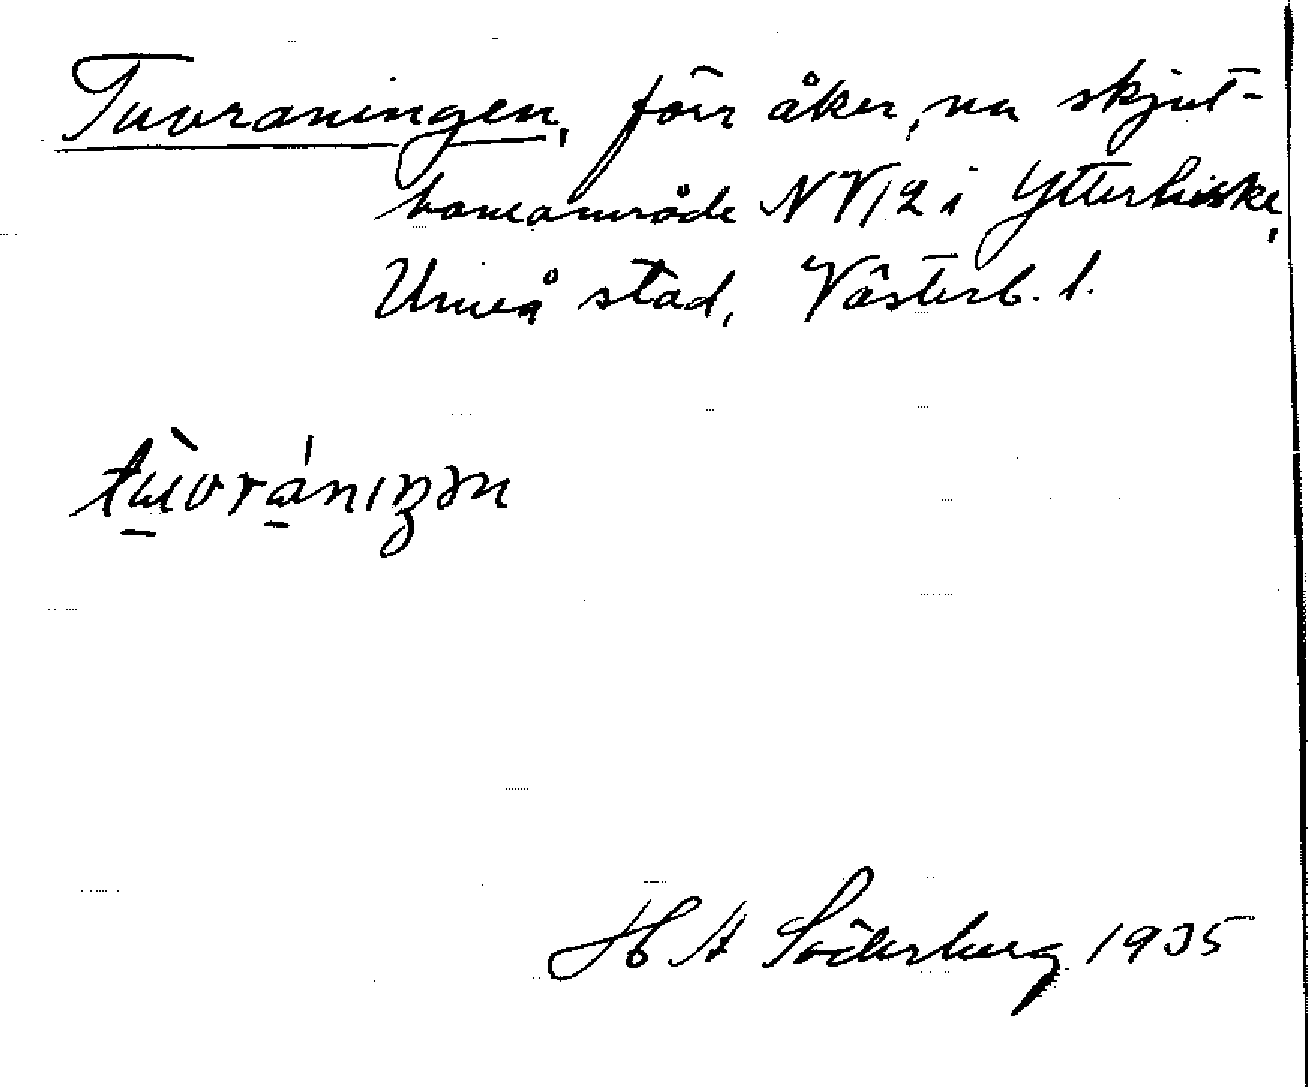 Tuvraningen, förr åker, nu skjut-
baneområde NV12 i Ytterhiske,
Umeå stad, Västerb. l.
H A Söderberg 1935